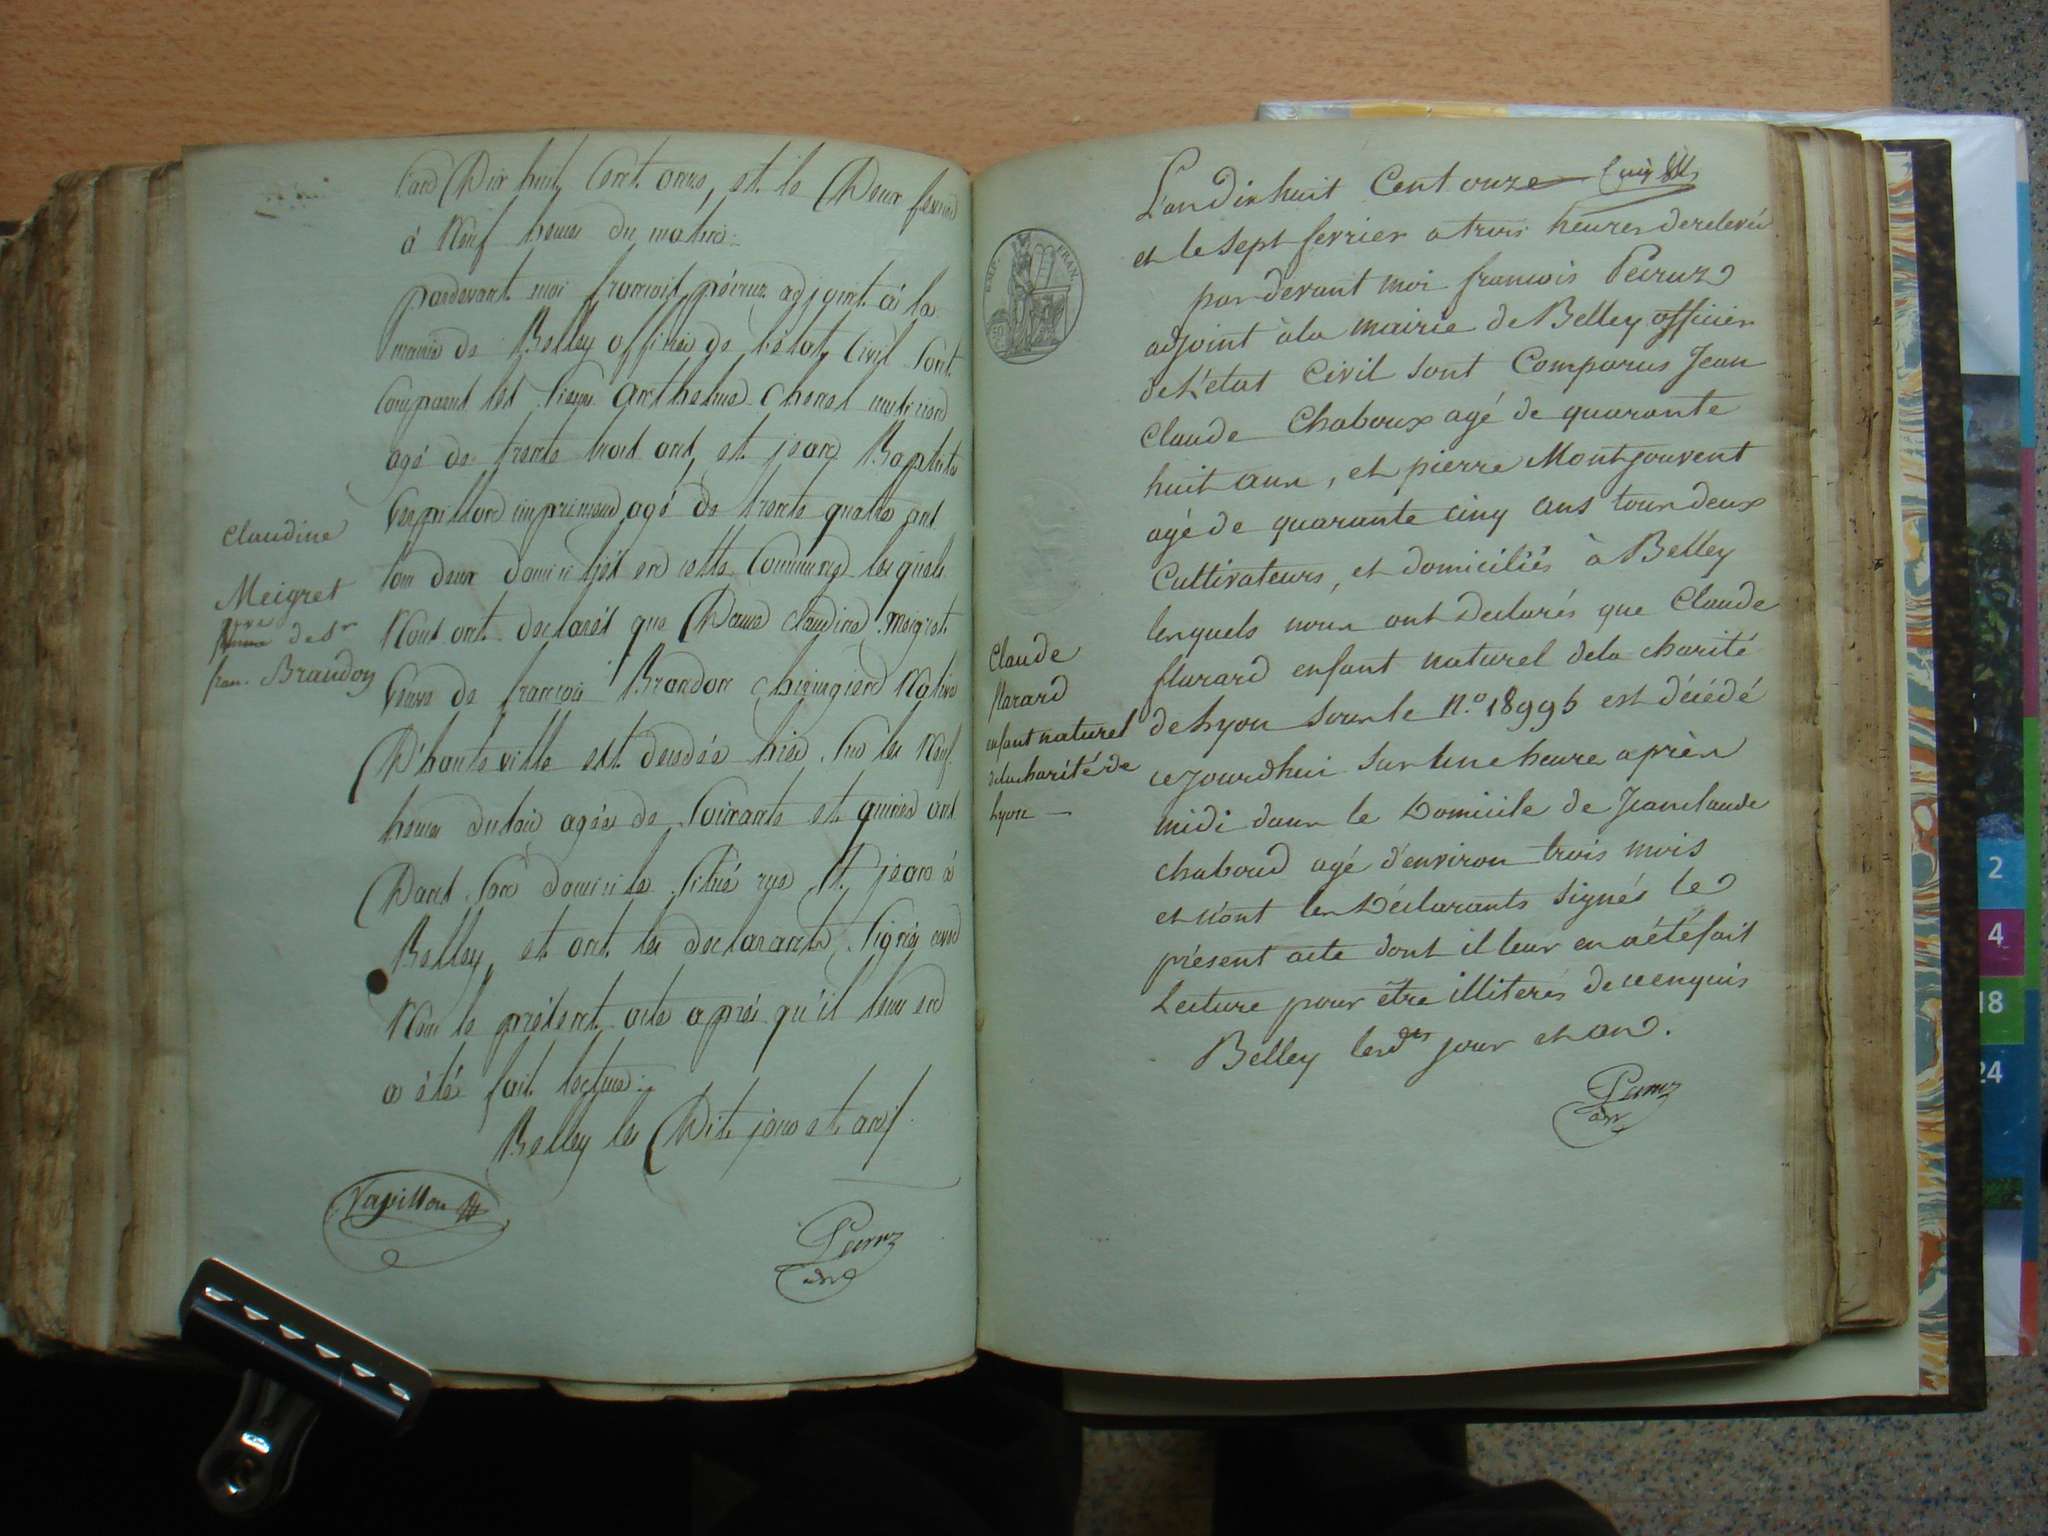 L'an Dix huit Cent onze, et le Deux fevrier
à Neuf heures du matin
pardevant moi françois peiruz adjoint à la
mairie de Belley officier de l'état Civil sont
Comparus les sieurs Anthelme
agé de trente trois ans et jean Baptiste
imprimeur agé de trente quatre ans
tou deux domiciliés en cette Commune lesquels
Nous ont declarés que Dame claudine Meigret
Veuve de françois Brandon chirurgien Native
D'hauteville est decedée hier sur les Neuf
heures du soir agée de soixante et quinze ans
Dans son domicile situé rue St jean à
Belley, et ont les declarants signés avec
Nous le présent acte après qu'il leur en
a été fait lecture
Belley les Dits jour et an
Claudine
Meigret
vve de Sr
fran. Brandon
Papillon
Peiruz
adj
L'an dix huit Cent onze
et le sept fevrier a trois heures de relevée
par devant moi francois Peiruz
adjoint à la mairie de Belley officier
de L'état Civil sont Comparus Jean
Claude Chaboux agé de quarante
huit ans, et pierre Montjouvent
agé de quarante cinq ans tous deux
Cultivateurs, et domiciliés à Belley
lesquels nous ont Declarés que Claude
flarard enfant naturel dela charité
de Lyon sous le N.o 18995 est décédé
cejourdhui sur une heure après
midi dans le Domicile de Jeanclaude
chaboud agé d'environ trois mois
et n'ont les Déclarants signés le
présent acte dont il leur en a été fait
Lecture pour être illiterés de ce enquis
Belley lesdits jour et an.
Claude
flarard
enfant naturel
dela charité de
Lyon
EMP. FRAN.
Peiruz
adj
2
4
18
24